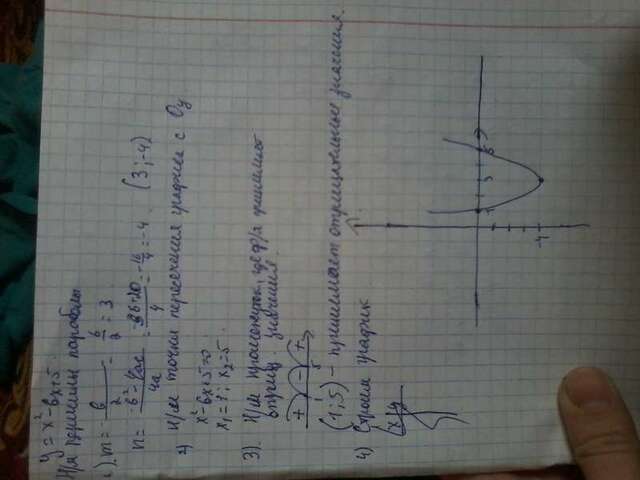 y = x² - 6x + 5.
Н/м вершины параболы
1). m = -b/2 = 6/2 = 3
n = -b² - 4ac/4a = -36+20/4 = -16/4 = -4 (3; -4)
2) Н/м точки пересечения графика с Oy
x² - 6x + 5 = 0
x₁ = 1; x₂ = 5.
3). Н/м промежуток, где ф/я принимает
отриц. значения
+ - +
1 5
(1; 5) - принимает отрицательные значения.
4) Строим график
x y
1 3 5
-4